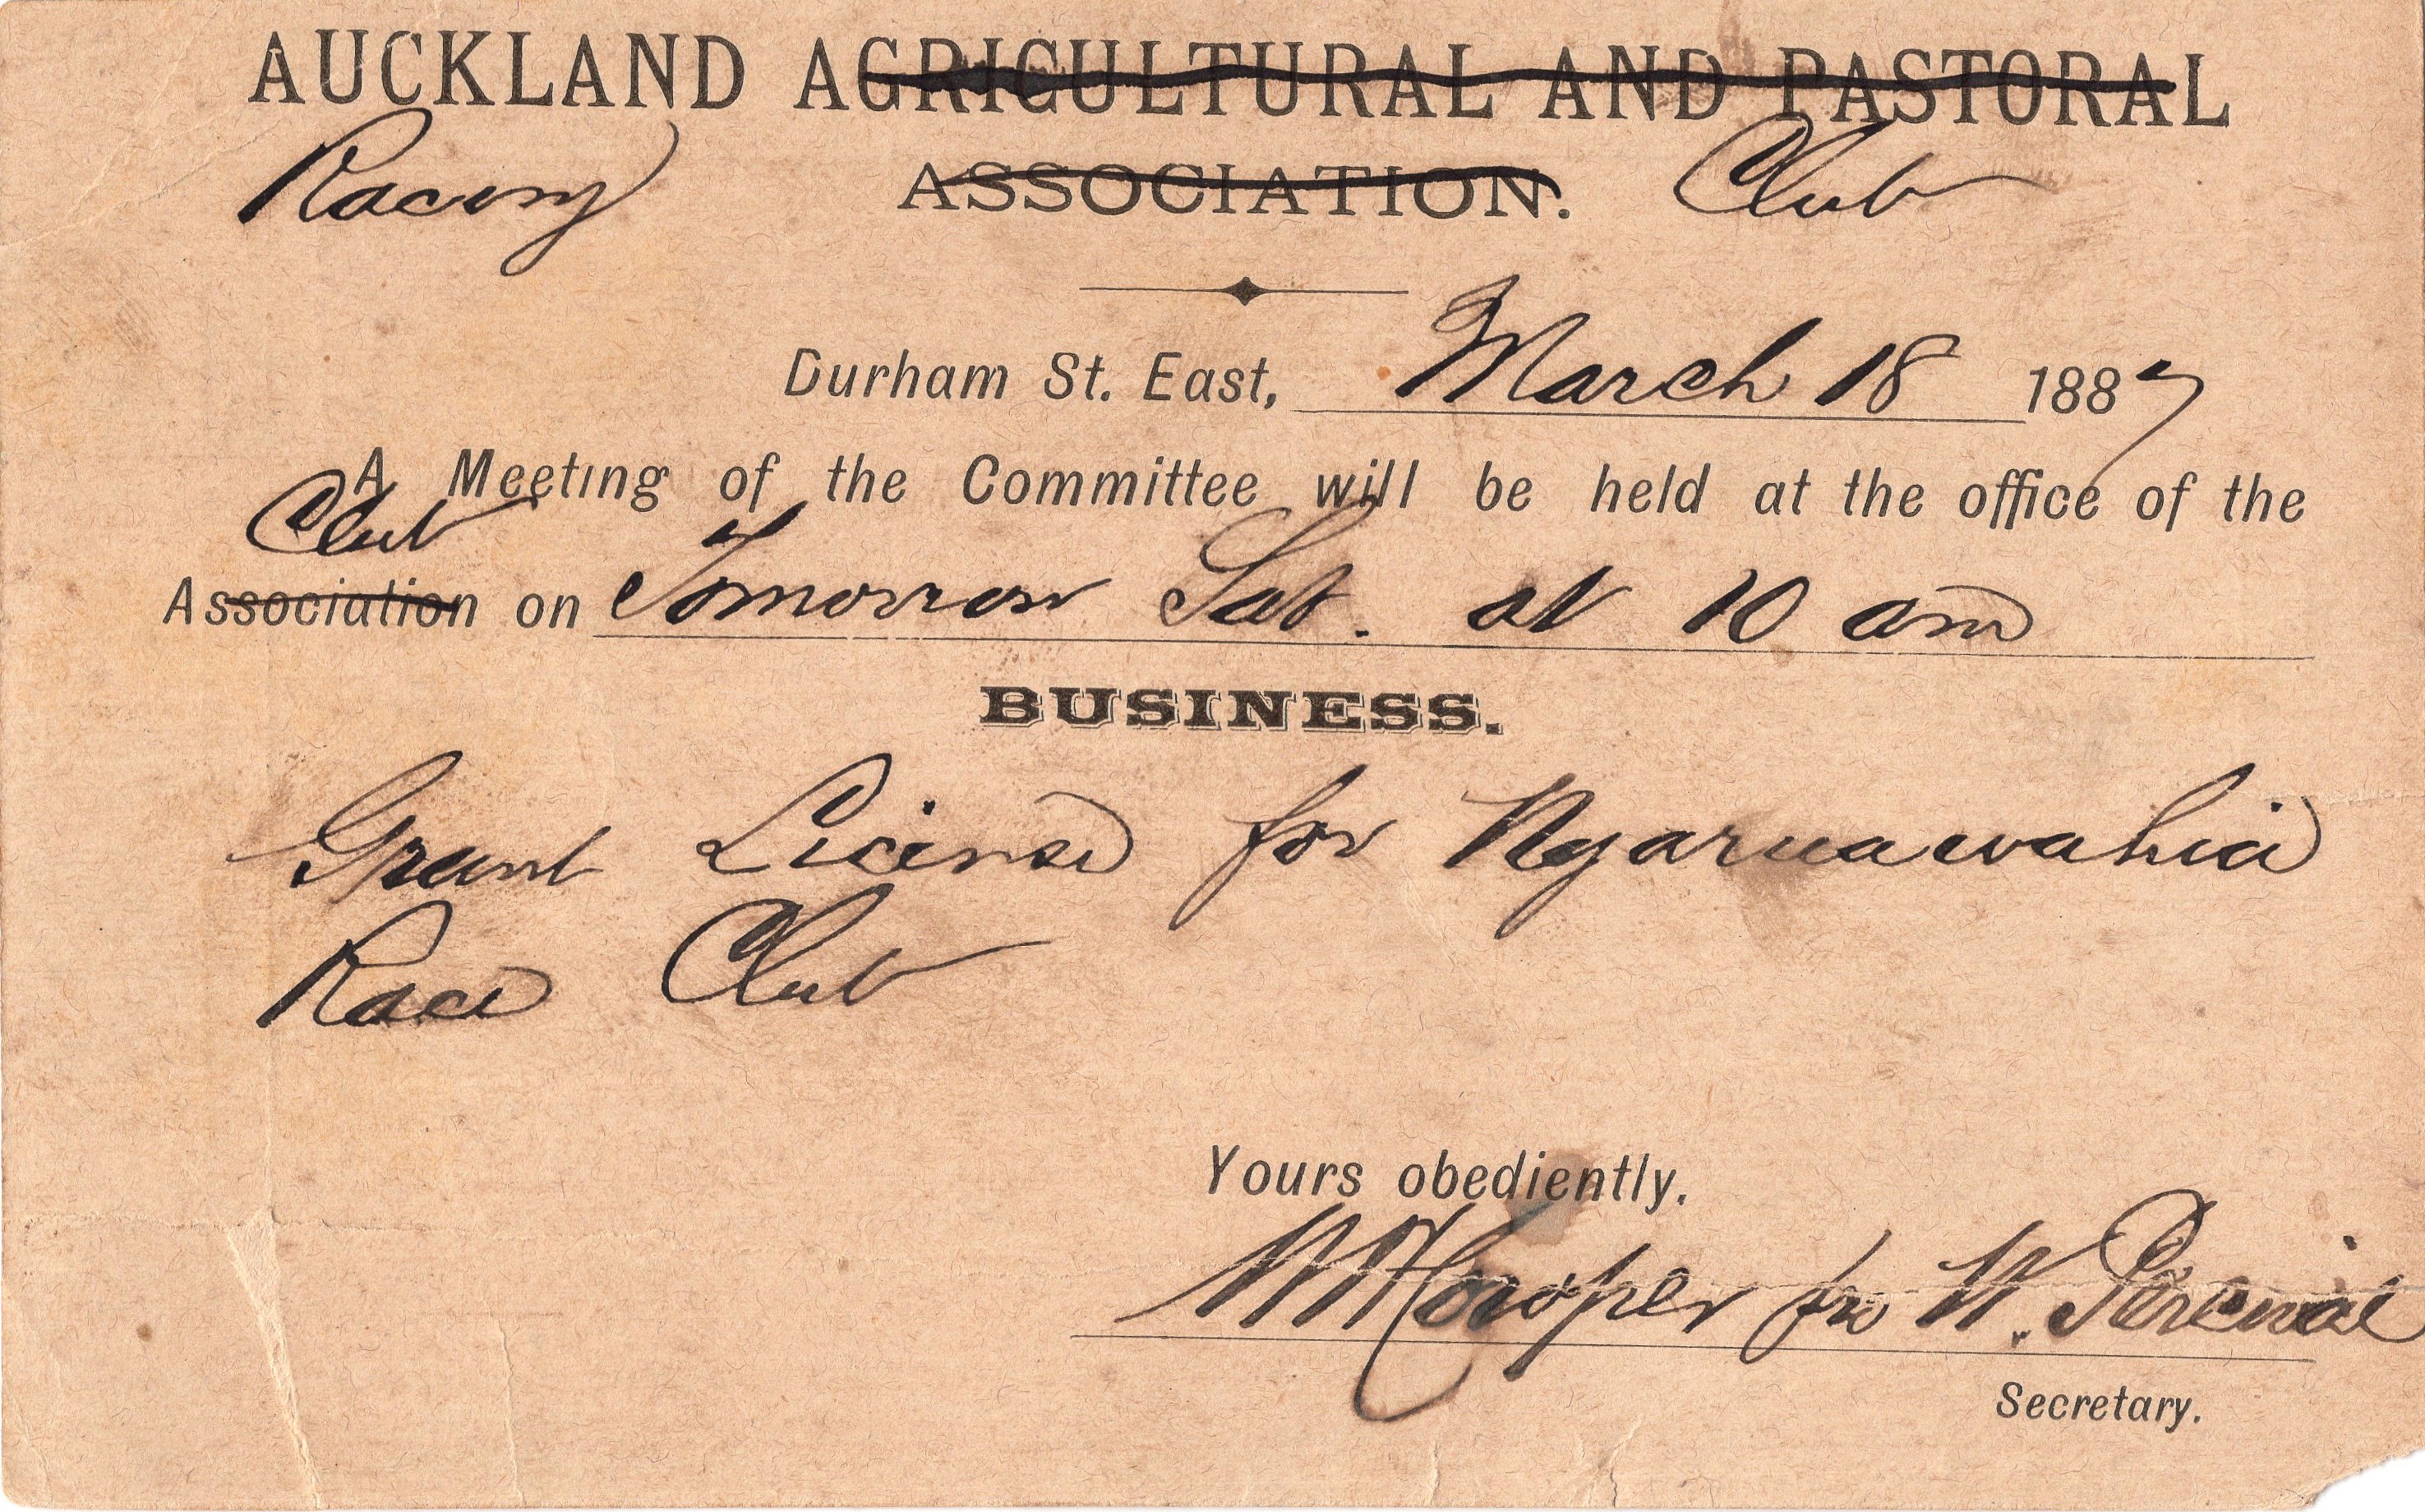 AUCKLAND AGRICULTURAL AND PASTORAL
Racing ASSOCIATION. Club
Durham St. East, March 18 1887
A Meeting of the Committee will be held at the office of the
Club
Association on Tomorrow Sat. at 10 am
BUSINESS.
Grant License for Ngaruawahia
Race Club
Yours obediently.
Cowper for W. Percival
Secretary.